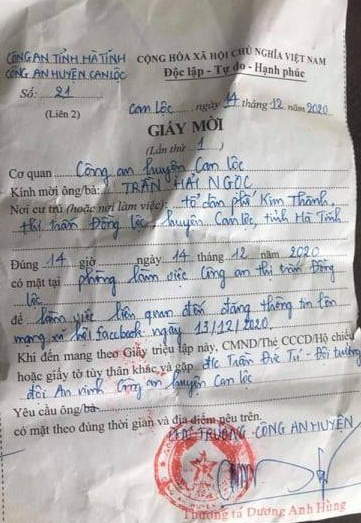 CÔNG AN TỈNH HÀ TĨNH
CÔNG AN HUYỆN CAN LỘC
Số: 21
(Liên 2)
CỘNG HÒA XÃ HỘI CHỦ NGHĨA VIỆT NAM
Độc lập - Tự do - Hạnh phúc
Can Lộc, ngày 14 tháng 12 năm 2020
GIẤY MỜI
(Lần thứ 1)
Cơ quan Công an huyện Can Lộc
Kính mời ông/bà: TRẦN HẢI NGỌC
Nơi cư trú (hoặc nơi làm việc): tổ dân phố Kim Thành,
thị trấn Đồng Lộc, huyện Can Lộc, tỉnh Hà Tĩnh
Đúng 14 giờ ngày 14 tháng 12 năm 2020
có mặt tại phòng làm việc Công an thị trấn Đồng
Lộc
để làm việc liên quan đến đăng thông tin lên
mạng xã hội facebook ngày 13/12/2020.
Khi đến mang theo Giấy triệu tập này, CMND/Thẻ CCCD/Hộ chiếu
hoặc giấy tờ tùy thân khác và gặp đ/c Trần Đức Tư - Đội trưởng
đội An ninh Công an huyện Can Lộc
Yêu cầu ông/bà
có mặt theo đúng thời gian và địa điểm nêu trên.
TRƯỞNG CÔNG AN HUYỆN
Thượng tá Dương Anh Hùng